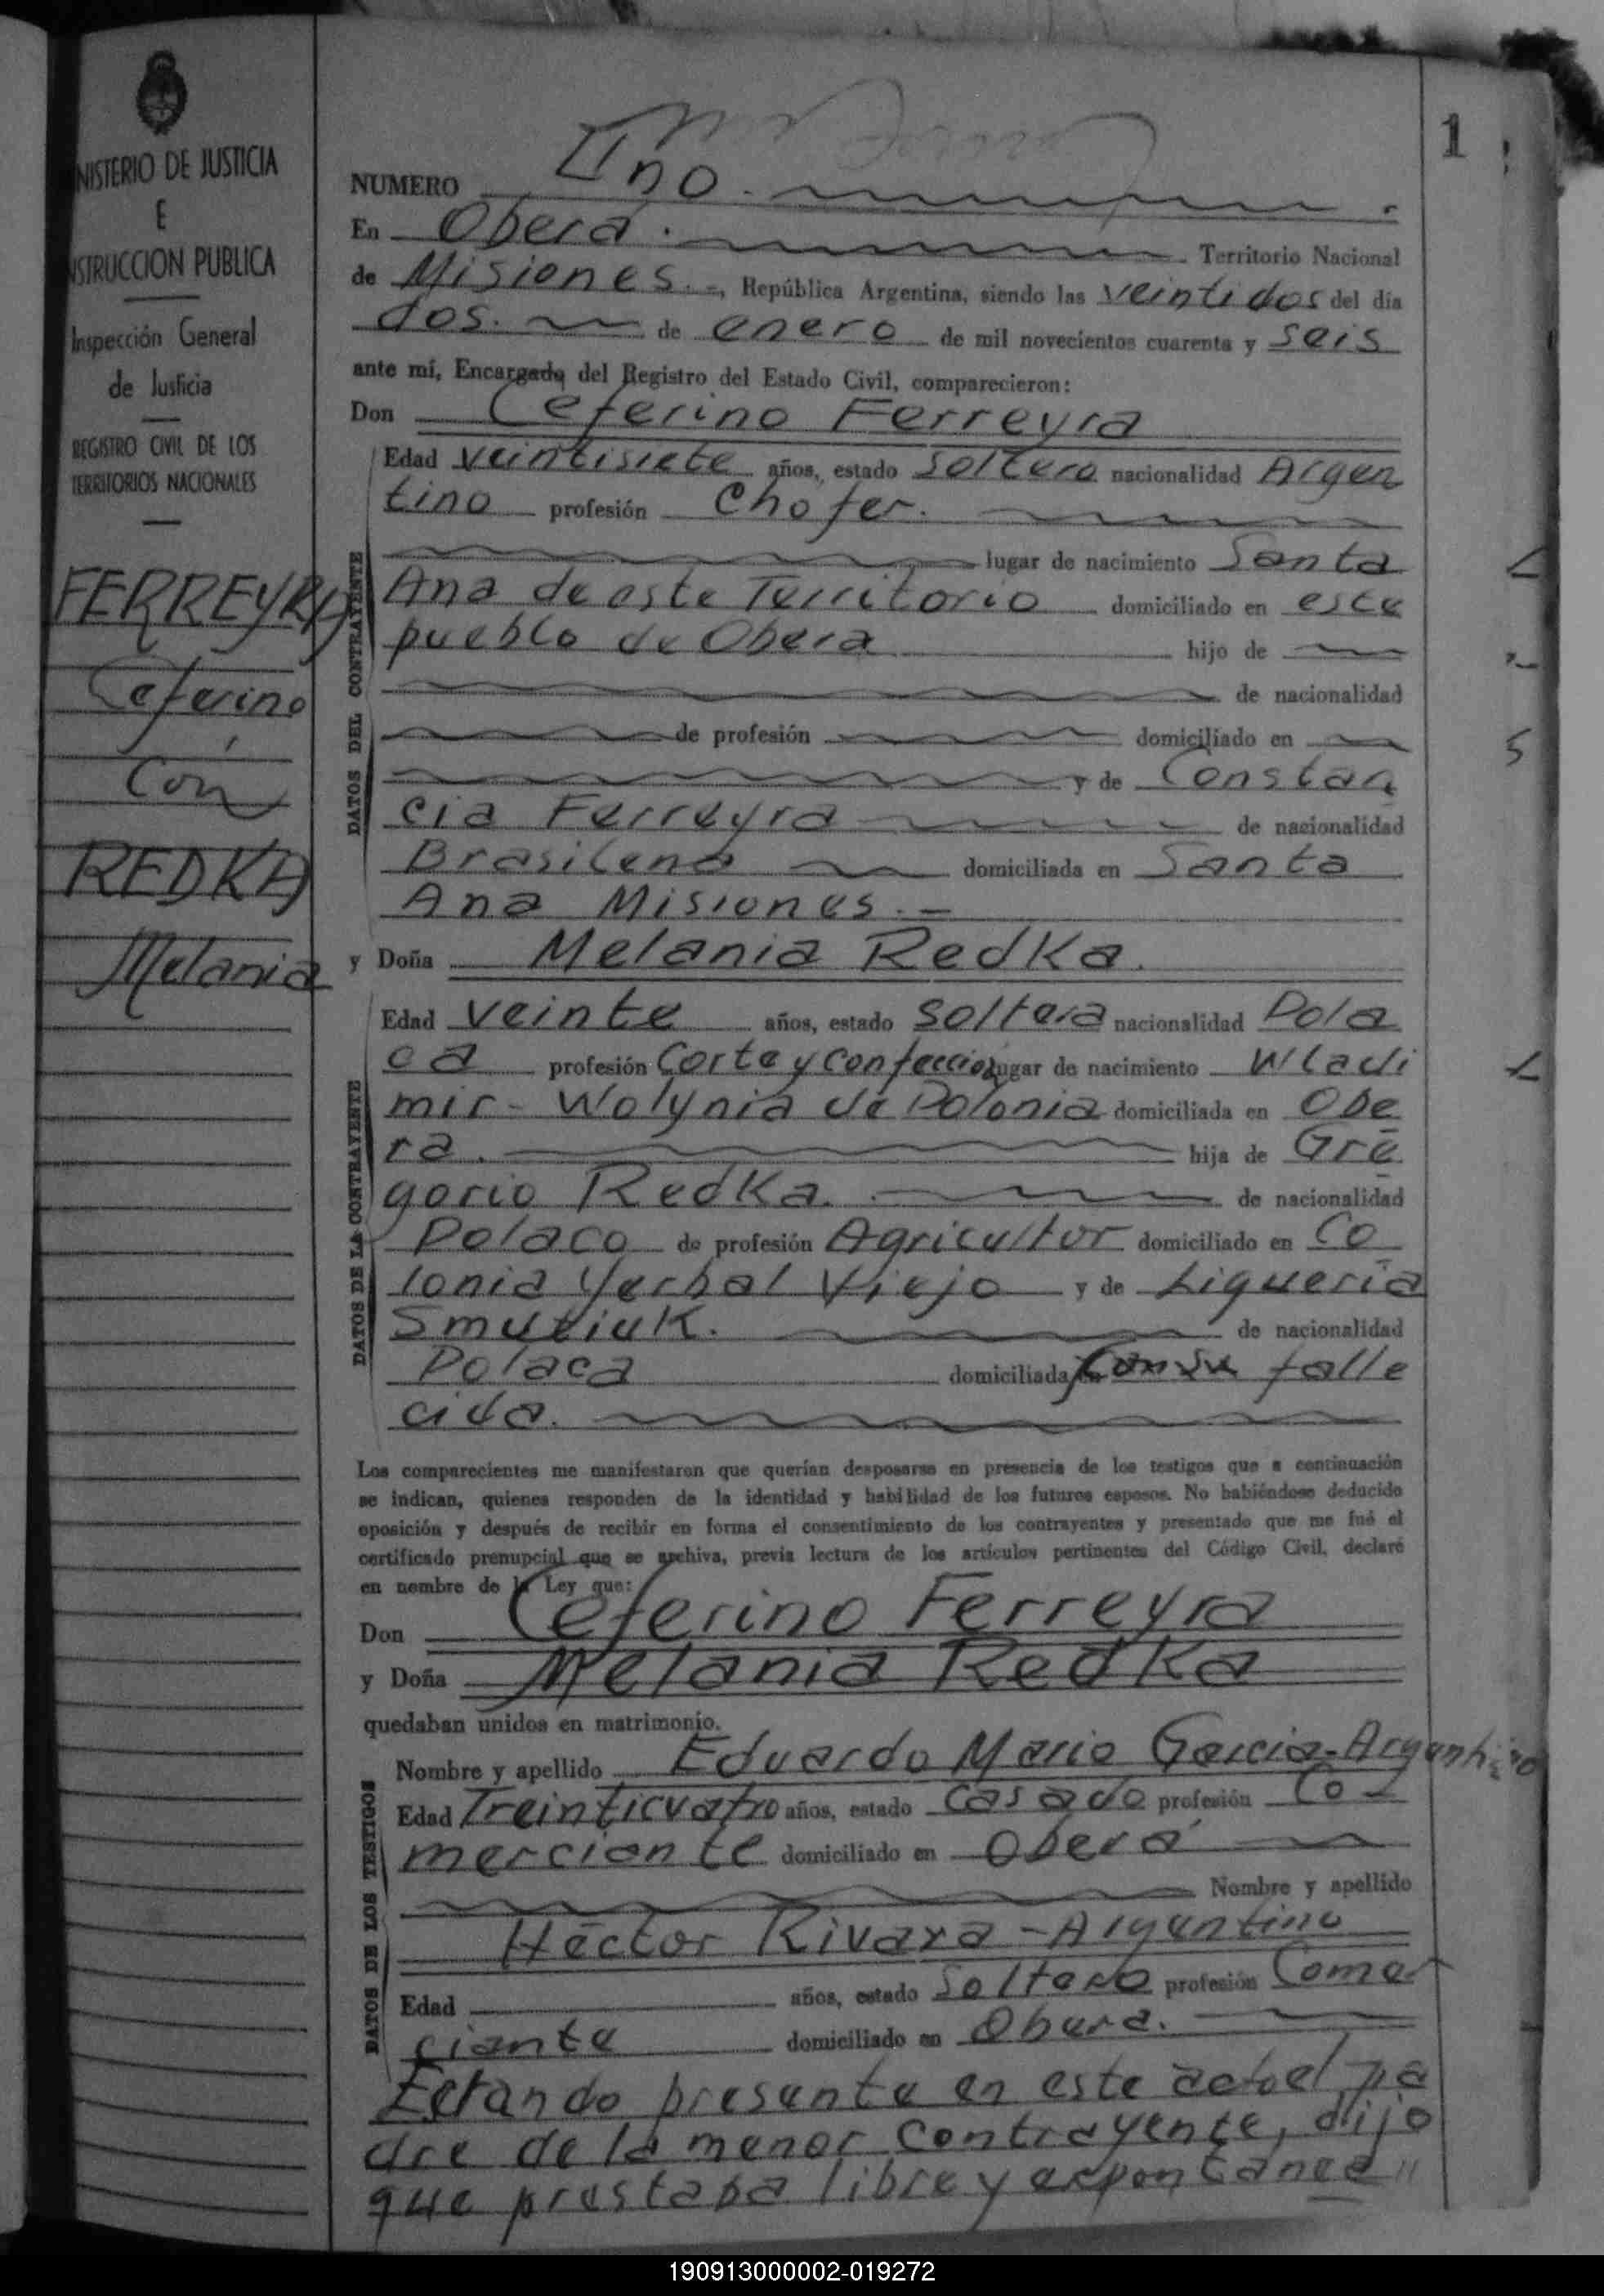 NISTERIO DE JUSTICIA
E
NSTRUCCION PUBLICA
Inspección General
de Justicia
REGISTRO CIVIL DE LOS
TERRITORIOS NACIONALES
FERREYRA
Ceferino
con
REDKA
Melania
1
NUMERO Uno.
En Oberá. Territorio Nacional
de Misiones.-, República Argentina, siendo las veintidos del día
dos. de enero de mil novecientos cuarenta y seis
ante mí, Encargado del Registro del Estado Civil, comparecieron:
Don Ceferino Ferreyra
DATOS DEL CONTRAYENTE
Edad veintisiete años, estado soltero nacionalidad Argen
tino profesión Chofer.
lugar de nacimiento Santa
Ana de este Territorio domiciliado en este
pueblo de Obera hijo de
de nacionalidad
de profesión domiciliado en
y de Constan
cia Ferreyra de nacionalidad
Brasilena domiciliada en Santa
Ana Misiones.-
y Doña Melania Redka.
DATOS DE LA CONTRAYENTE
Edad veinte años, estado soltera nacionalidad Pola
ca profesión Corte y confeccion lugar de nacimiento Wladi
mir- Wolynia de Polonia domiciliada en Obe
ra. hija de Gre
gorio Redka. de nacionalidad
Polaco de profesión Agricultor domiciliado en Co
lonia Yerbal Viejo y de Ligueria
Smutiuk. de nacionalidad
Polaca domiciliada en falle
cida.
Los comparecientes me manifestaron que querían desposarse en presencia de los testigos que a continuación
se indican, quienes responden de la identidad y habilidad de los futuros esposos. No habiéndose deducido
oposición y después de recibir en forma el consentimiento de los contrayentes y presentado que me fué el
certificado prenupcial que se archiva, previa lectura de los artículos pertinentes del Código Civil, declaré
en nombre de la Ley que:
Don Ceferino Ferreyra
y Doña Melania Redka
quedaban unidos en matrimonio.
DATOS DE LOS TESTIGOS
Nombre y apellido Eduardo Mario Garcia-Argentino
Edad Treinticuatro años, estado casado profesión Co-
merciante domiciliado en Oberá
Nombre y apellido
Héctor Rivara-Argentino
Edad años, estado Soltero profesión Comer
ciante domiciliado en Obera.
Estando presente en este acto el pa
dre de la menor contrayente, dijo
que prestaba libre y espontanea"
190913000002-019272